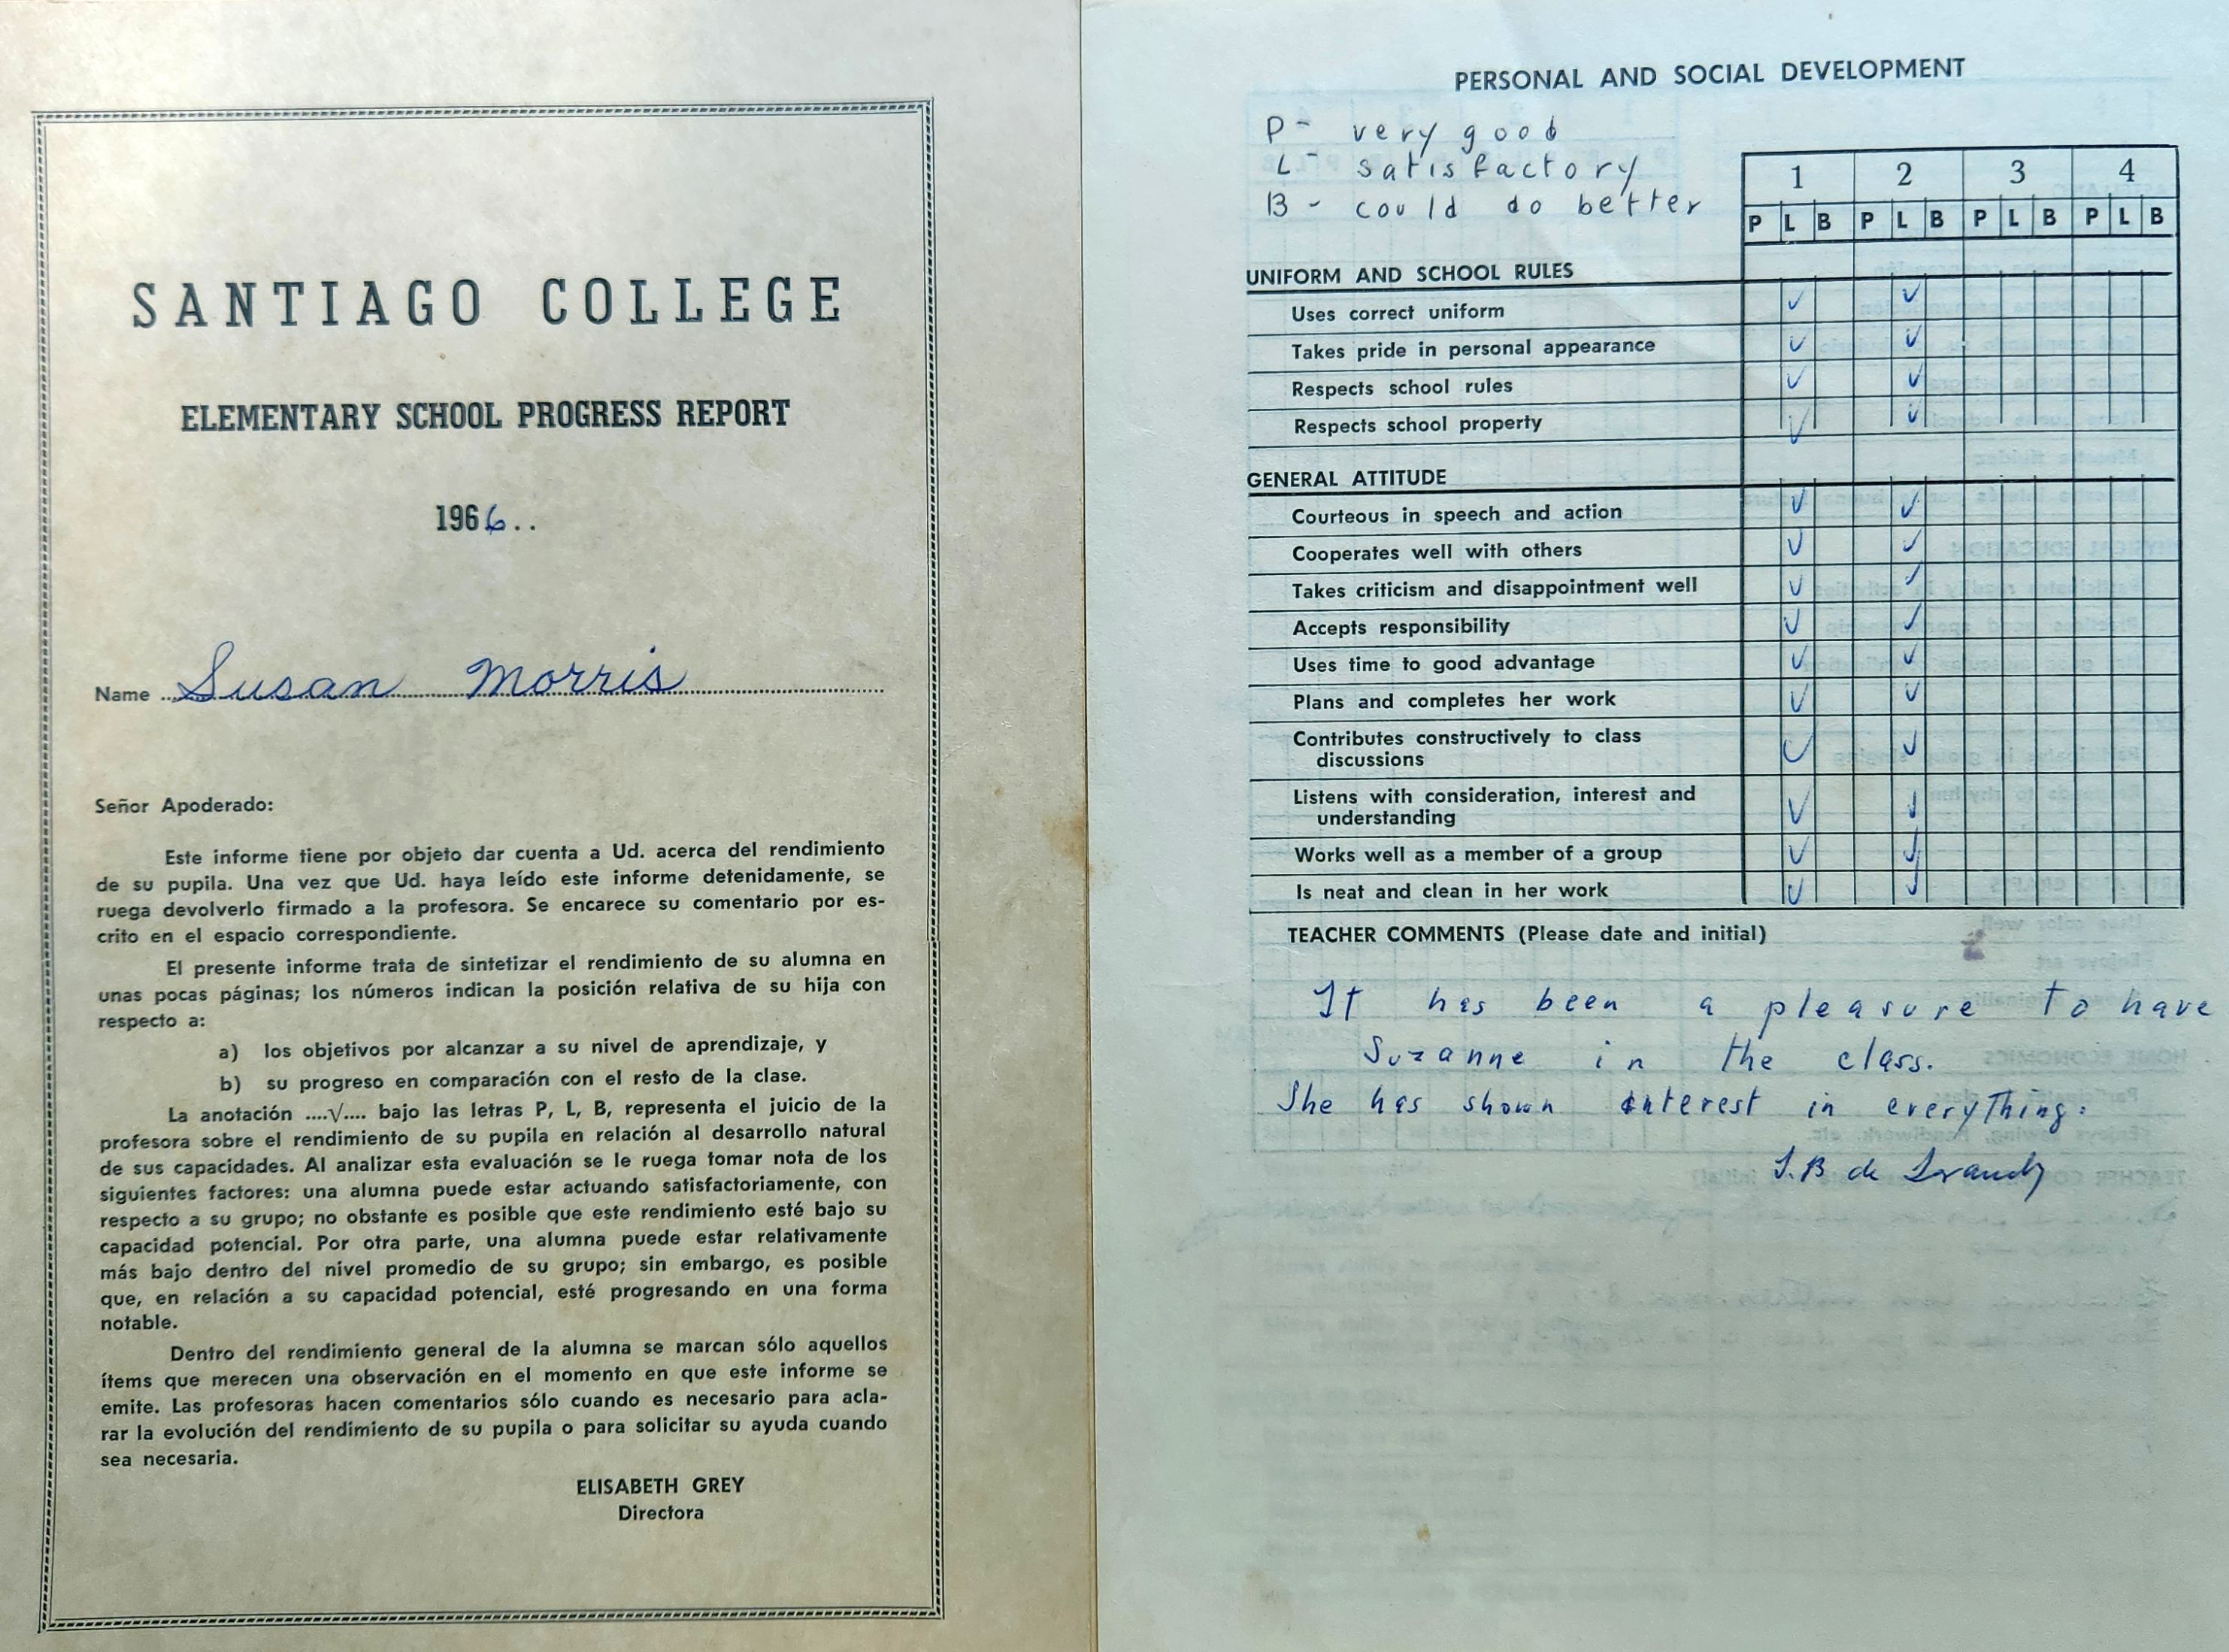 SANTIAGO COLLEGE
ELEMENTARY SCHOOL PROGRESS REPORT
1966..
Name Susan Morris
Señor Apoderado:
Este informe tiene por objeto dar cuenta a Ud. acerca del rendimiento
de su pupila. Una vez que Ud. haya leído este informe detenidamente, se
ruega devolverlo firmado a la profesora. Se encarece su comentario por es-
crito en el espacio correspondiente.
El presente informe trata de sintetizar el rendimiento de su alumna en
unas pocas páginas; los números indican la posición relativa de su hija con
respecto a:
a) los objetivos por alcanzar a su nivel de aprendizaje, y
b) su progreso en comparación con el resto de la clase.
La anotación ....√.... bajo las letras P, L, B, representa el juicio de la
profesora sobre el rendimiento de su pupila en relación al desarrollo natural
de sus capacidades. Al analizar esta evaluación se le ruega tomar nota de los
siguientes factores: una alumna puede estar actuando satisfactoriamente, con
respecto a su grupo; no obstante es posible que este rendimiento esté bajo su
capacidad potencial. Por otra parte, una alumna puede estar relativamente
más bajo dentro del nivel promedio de su grupo; sin embargo, es posible
que, en relación a su capacidad potencial, esté progresando en una forma
notable.
Dentro del rendimiento general de la alumna se marcan sólo aquellos
ítems que merecen una observación en el momento en que este informe se
emite. Las profesoras hacen comentarios sólo cuando es necesario para acla-
rar la evolución del rendimiento de su pupila o para solicitar su ayuda cuando
sea necesaria.
ELISABETH GREY
Directora
PERSONAL AND SOCIAL DEVELOPMENT
P - very good
L - satisfactory
B - could do better
1 2 3 4
P L B P L B P L B P L B
UNIFORM AND SCHOOL RULES
Uses correct uniform ✓ ✓
Takes pride in personal appearance ✓ ✓
Respects school rules ✓ ✓
Respects school property ✓ ✓
GENERAL ATTITUDE
Courteous in speech and action ✓ ✓
Cooperates well with others ✓ ✓
Takes criticism and disappointment well ✓ ✓
Accepts responsibility ✓ ✓
Uses time to good advantage ✓ ✓
Plans and completes her work ✓ ✓
Contributes constructively to class
discussions ✓ ✓
Listens with consideration, interest and
understanding ✓ ✓
Works well as a member of a group ✓ ✓
Is neat and clean in her work ✓ ✓
TEACHER COMMENTS (Please date and initial)
It has been a pleasure to have
Suzanne in the class.
She has shown interest in everything.
B de